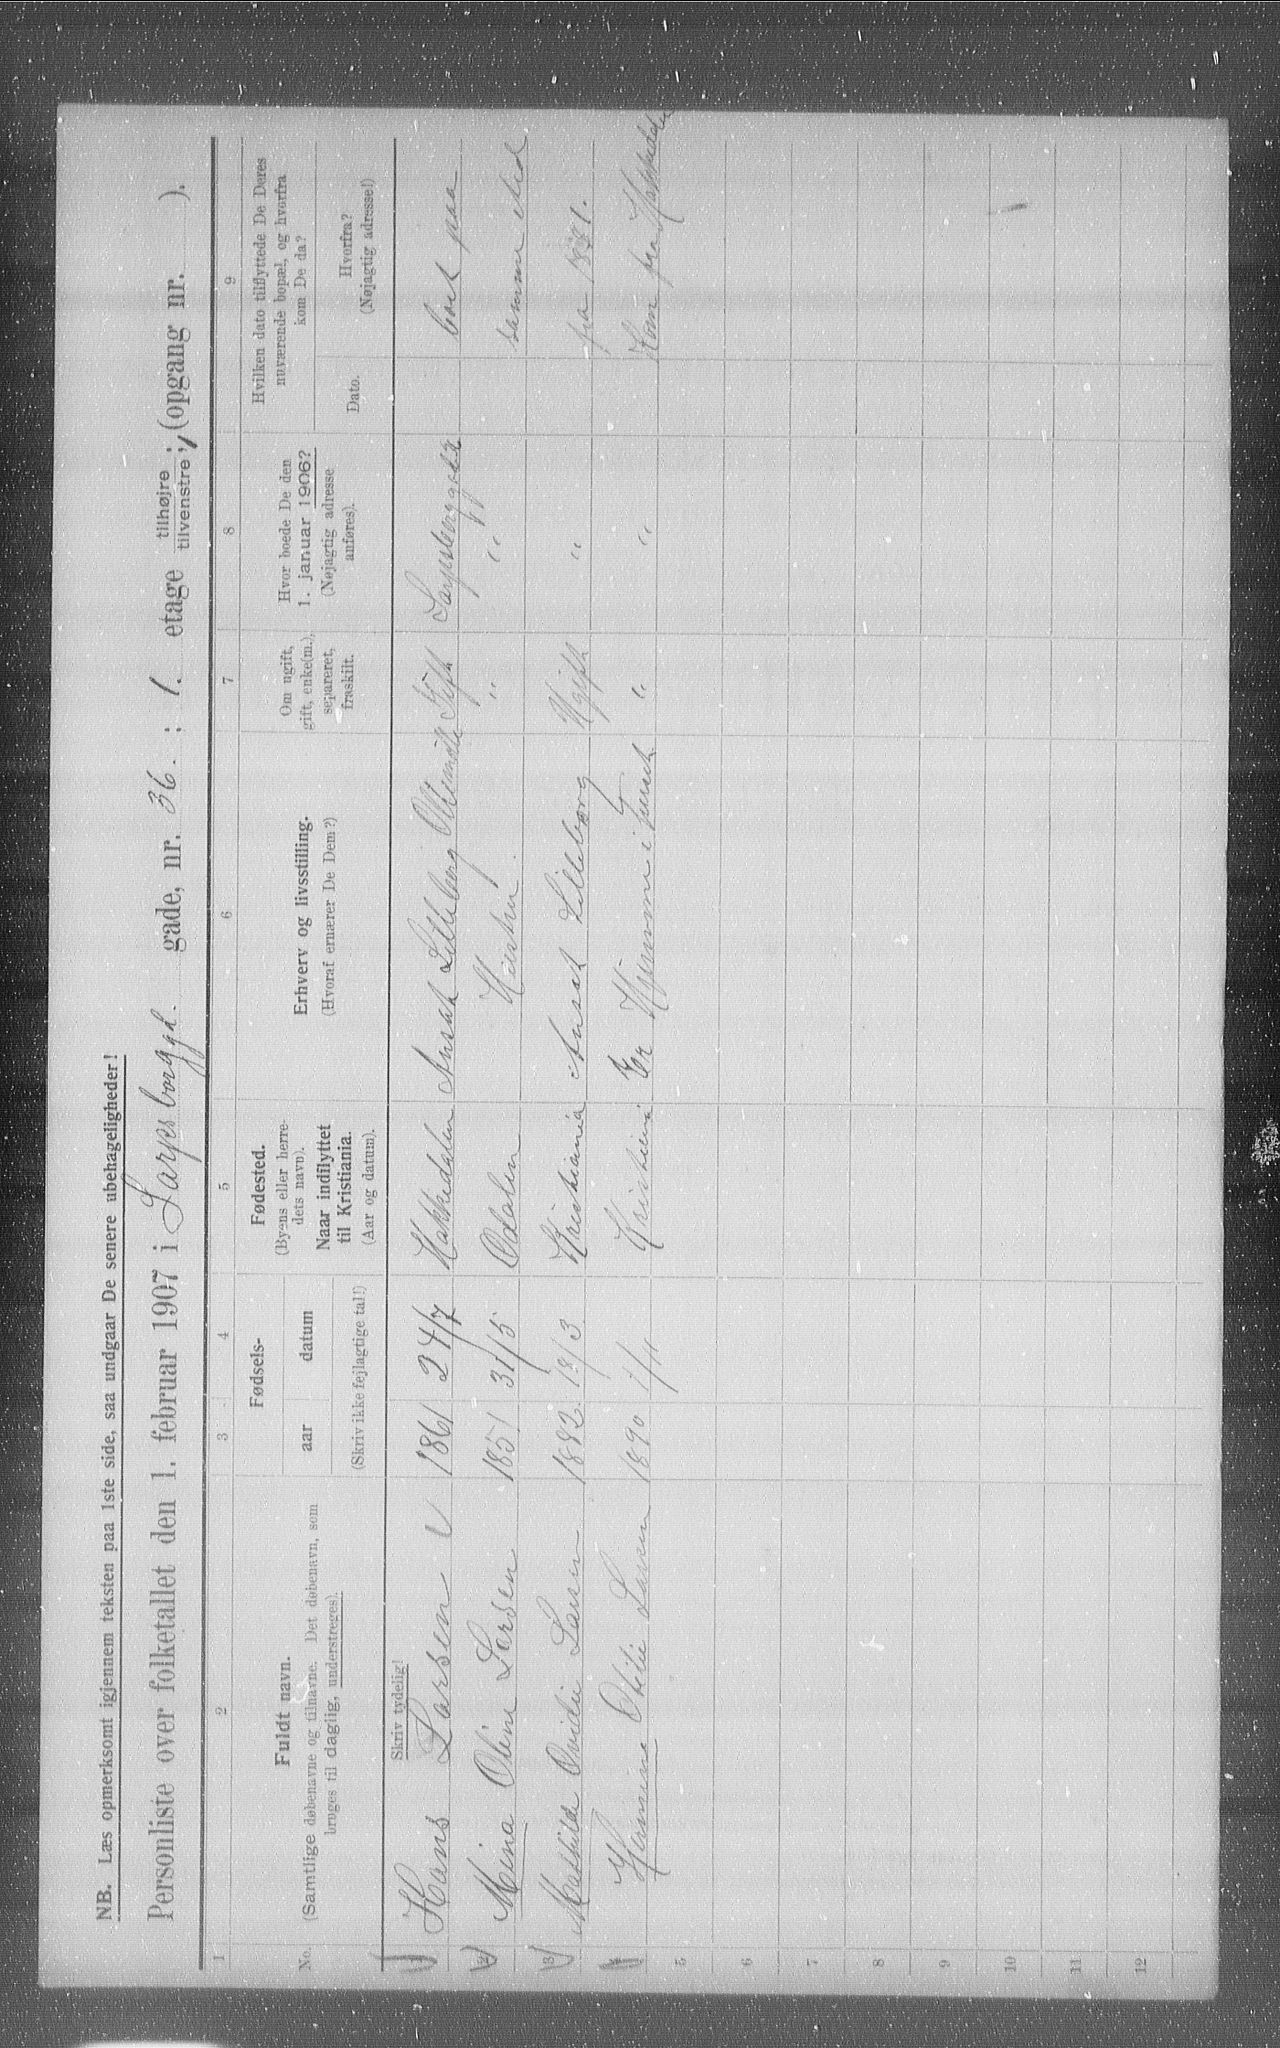 NB. Læs opmerksomt igjennem teksten paa 1ste side, saa undgaar De senere ubehageligheder!
Personliste over folketallet den 1. februar 1907 i Sarpsborggd. gade, nr. 36. ; 1. etage tilhøjre ; tilvenstre ; (opgang nr. ).
1 2 3 4 5 6 7 8 9
No.
Fuldt navn.
(Samtlige døbenavne og tilnavne. Det døbenavn, som
bruges til daglig, understreges).
Fødsels-
aar datum
(Skriv ikke fejlagtige tal!)
Fødested.
(Byens eller herre-
dets navn).
Naar indflyttet
til Kristiania.
(Aar og datum).
Erhverv og livsstilling.
(Hvoraf ernærer De Dem?)
Om ugift,
gift, enke(m.),
separeret,
fraskilt.
Hvor boede De den
1. januar 1906?
(Nøjagtig adresse
anføres).
Hvilken dato tilflyttede De Deres
nuværende bopæl, og hvorfra
kom De da?
Dato.
Hvorfra?
(Nøjagtig adresse!)
Skriv tydelig!
1 Hans Larsen 1861 24/7 Hakkedalen Ansat Lilleborg Oliemølle Gift Sarpsborggata boet paa
2 Mina Oline Larsen 1851 31/5 Odalen Hustru " " samme sted
3 Mathilde Ovidie Larsen 1882 18/3 Kristiania Ansat Lilleborg Ugift " fra 1881.
4 Hermine Otilie Larsen 1890 1/11 Kristiania Er Hjemme i huset " " Kom fra Hakkedalen
5
6
7
8
9
10
11
12